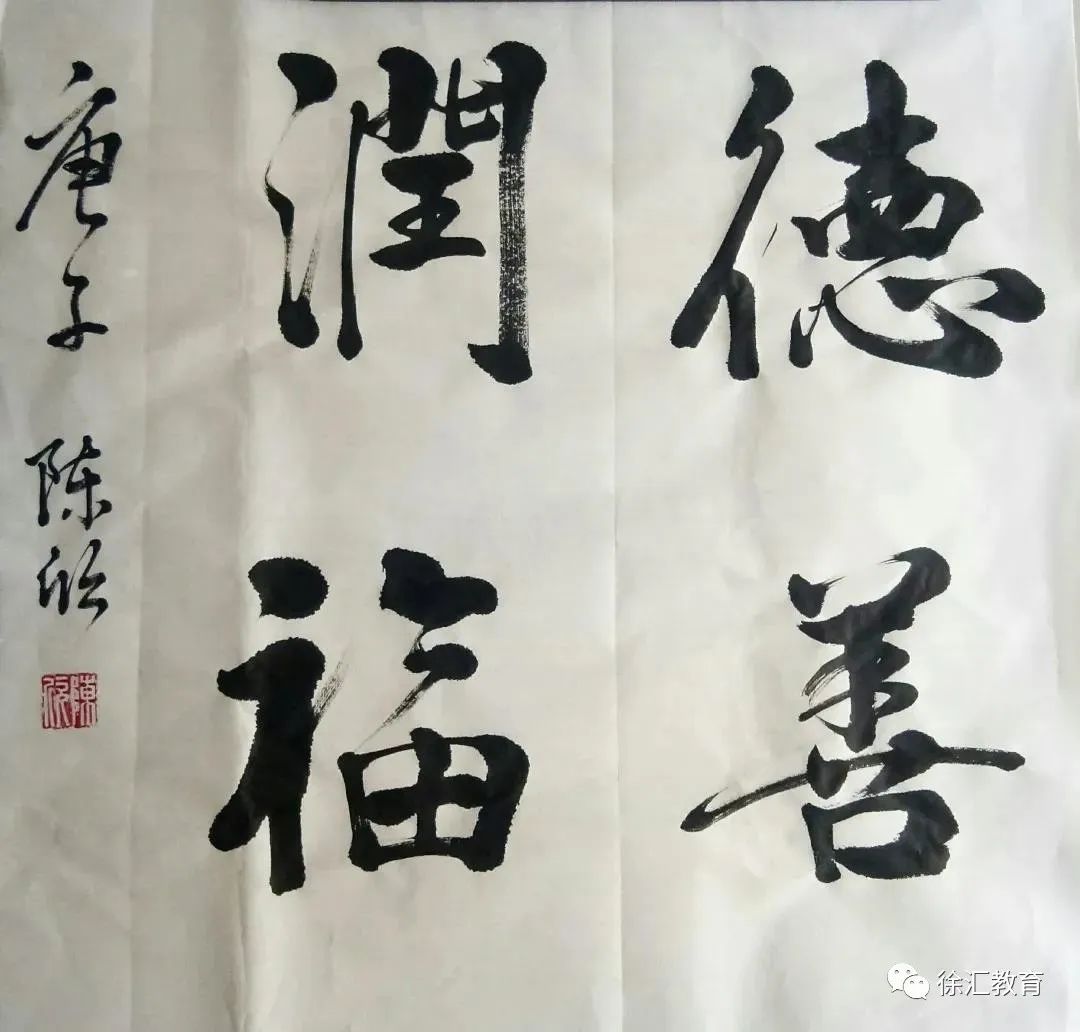 德善
潤福
庚子 陈欣
陳欣
徐汇教育